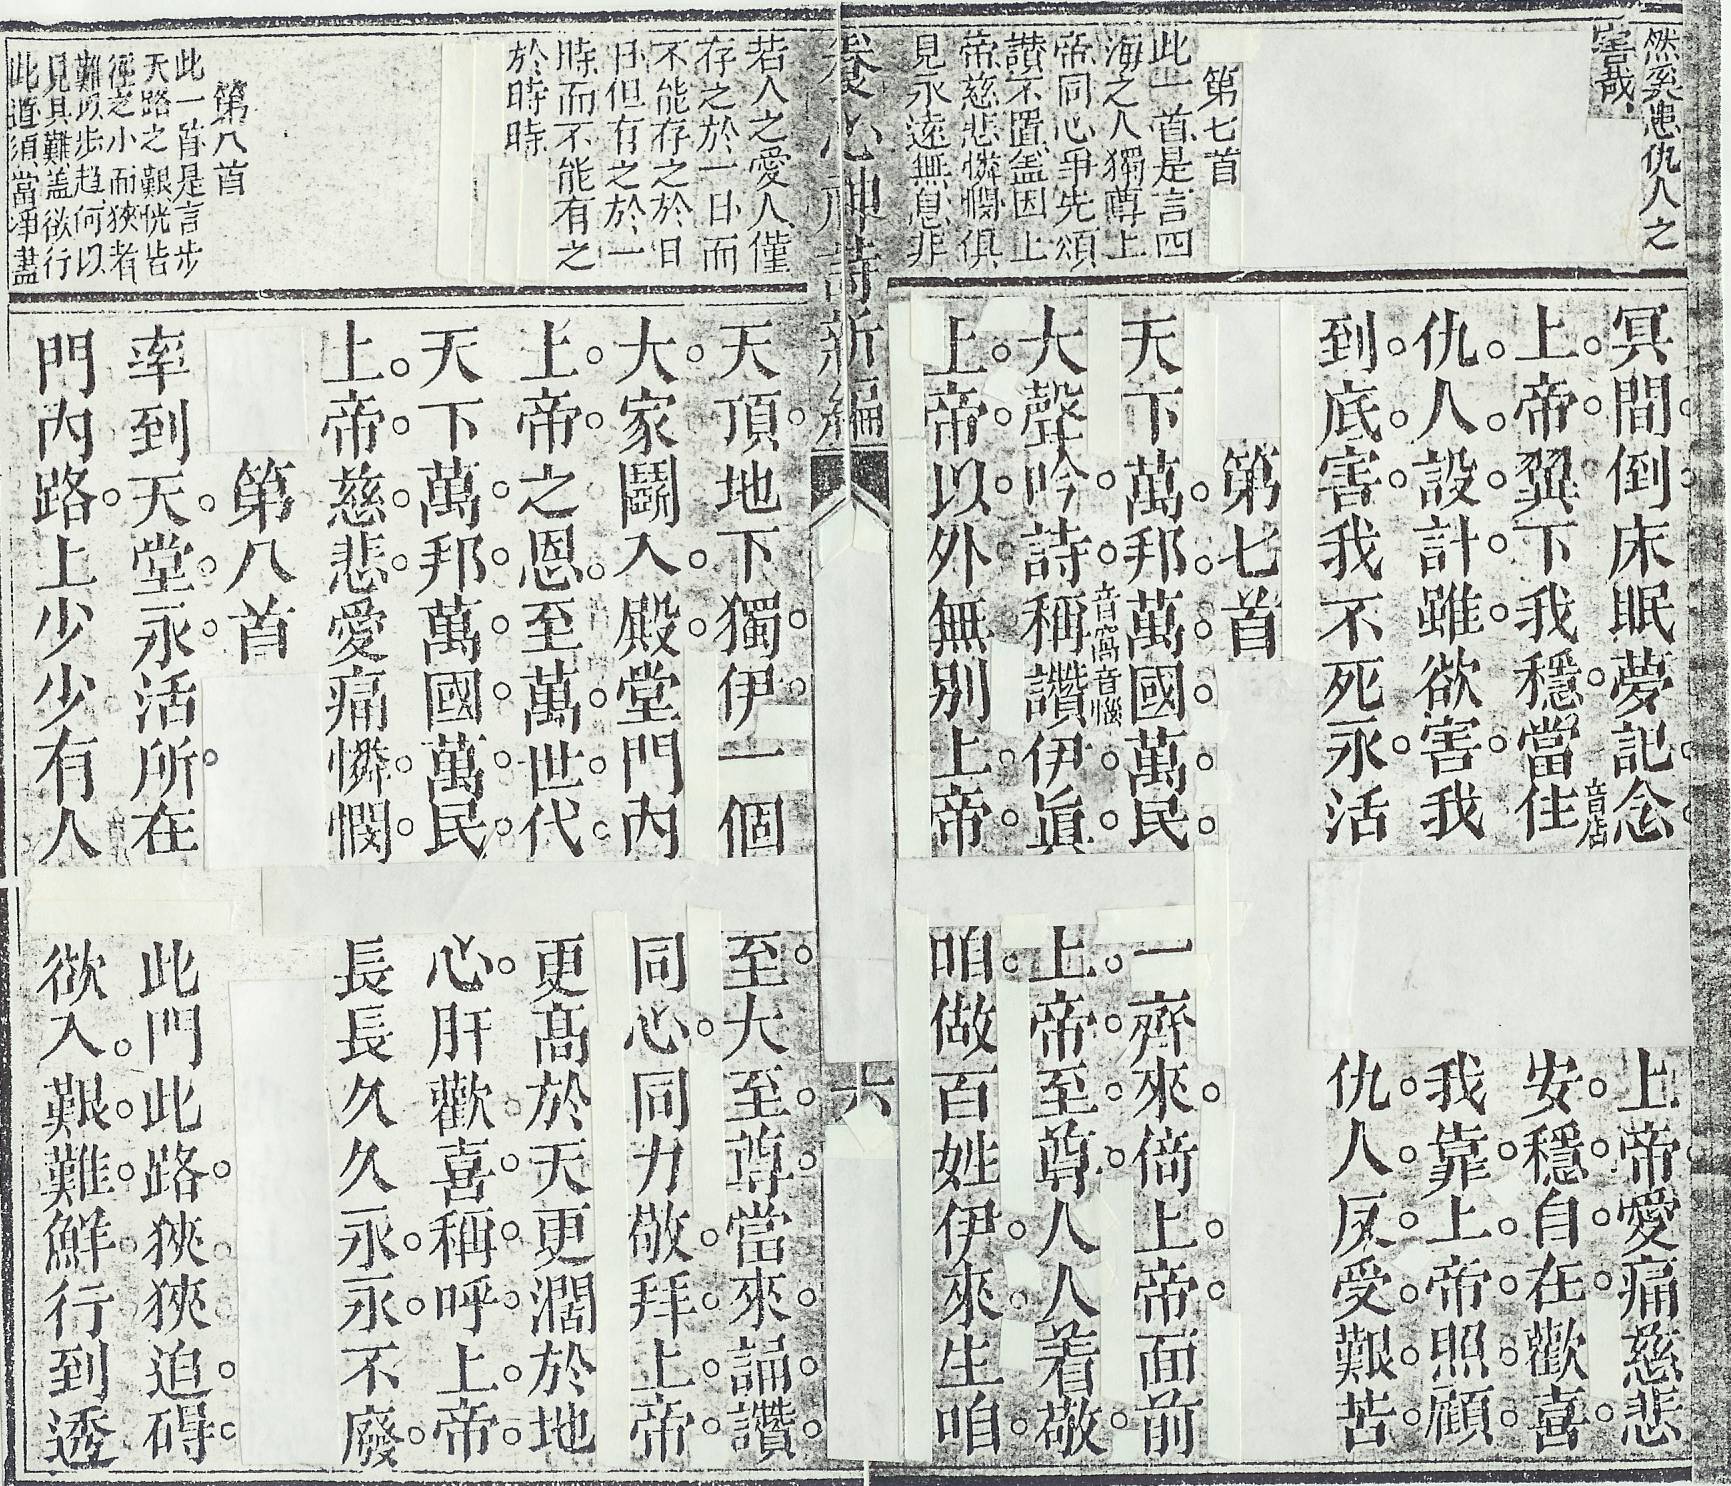 然奚患仇人之
害哉
第七首
此一首是言四
海之人獨尊上
帝同心爭先頌
讃不置盖因上
帝慈悲憐憫俱
見永遠無息非
冥間倒床眠夢記念
上帝愛痛慈悲
上帝翼下我穩當住
音店
安穩自在歡喜
仇人設計雖欲害我
我靠上帝照顧
到底害我不死永活
仇人反受艱苦
第七首
天下萬邦萬國萬民
一齊來倚上帝面前
大聲吟詩稱讚伊眞
上帝至尊人人着敬
上帝以外無別上帝
咱做百姓伊來生咱
養心神詩新編
六
若人之愛人僅
存之於一日而
不能存之於日
日但有之於一
時而不能有之
於時時
第八首
此一首是言步
天路之艱恍皆
徑之小而狹者
難以步趋何以
見其難盖欲行
此道須當淨盡
天頂地下獨伊一個
至大至尊當來謳讚
大家鬪入殿堂門內
同心同力敬拜上帝
上帝之恩至萬世代
更高於天更濶於地
天下萬邦萬國萬民
心肝歡喜稱呼上帝
上帝慈悲愛痛憐憫
長長久久永永不廢
第八首
率到天堂永活所在
此門此路狹狹迫碍
門內路上少少有人
欲入艱難鮮行到透